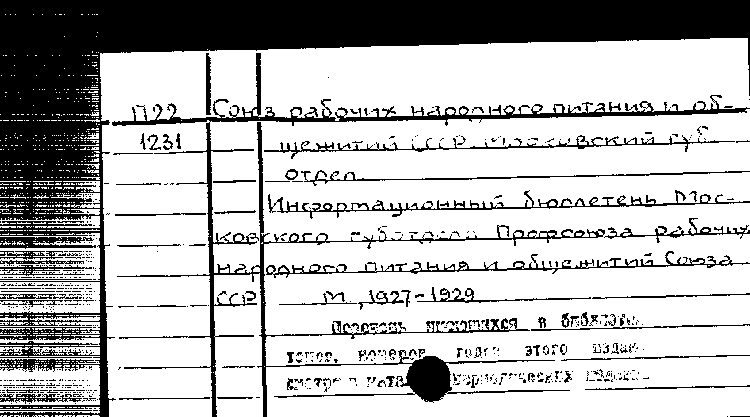 П22 Союз рабочих народного питания и об-
1231 щежитий СССР. Московский губ.
отдел.
Информационный бюллетень Мос-
ковского губотдела Профсоюза рабочих
народного питания и общежитий Союза
ССР М., 1927-1929
Перечень имеющихся в библиоте
томов, номеров годов этого издан
смотри в катал периодических издан